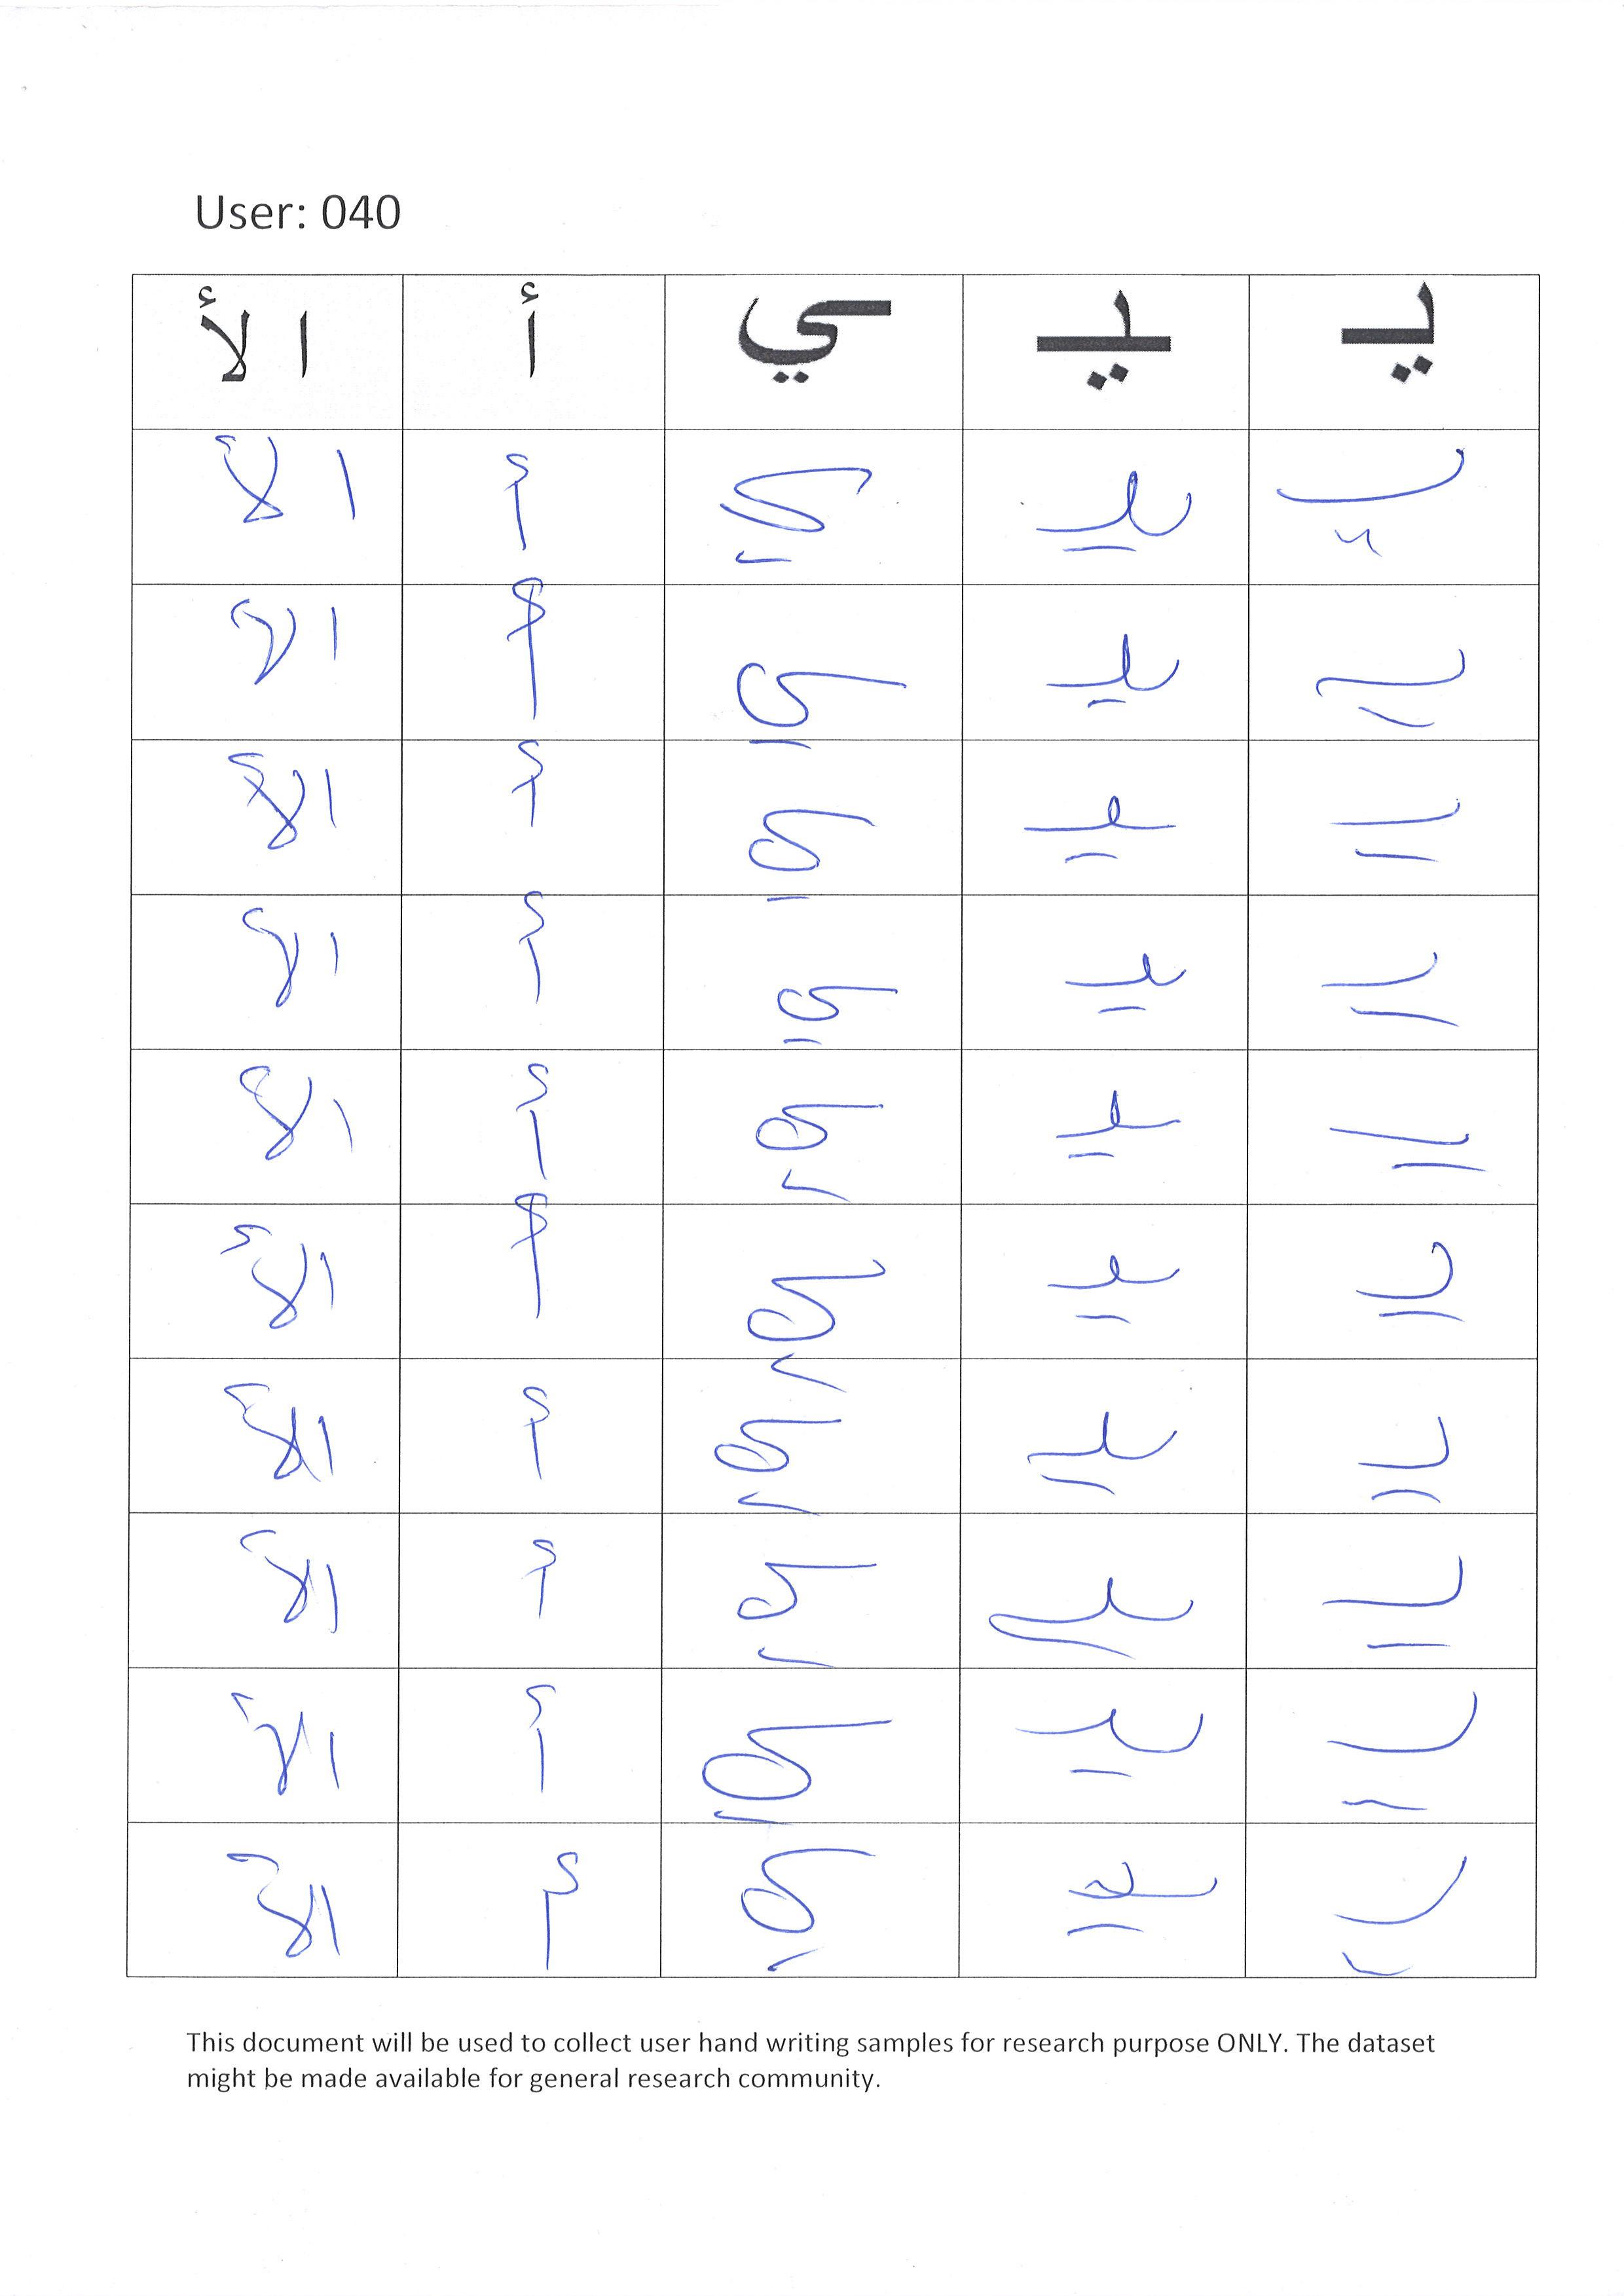 User: 040
يـ ـيـ ـي أ ا لأ
يـ ـيـ ـي أ ا لأ
يـ ـيـ ـي أ ا لأ
يـ ـيـ ـي أ ا لأ
يـ ـيـ ـي أ ا لأ
يـ ـيـ ـي أ ا لأ
يـ ـيـ ـي أ ا لأ
يـ ـيـ ـي أ ا لأ
يـ ـيـ ـي أ ا لأ
يـ ـيـ ـي أ ا لأ
يـ ـيـ ـي أ ا لأ
This document will be used to collect user hand writing samples for research purpose ONLY. The dataset
might be made available for general research community.